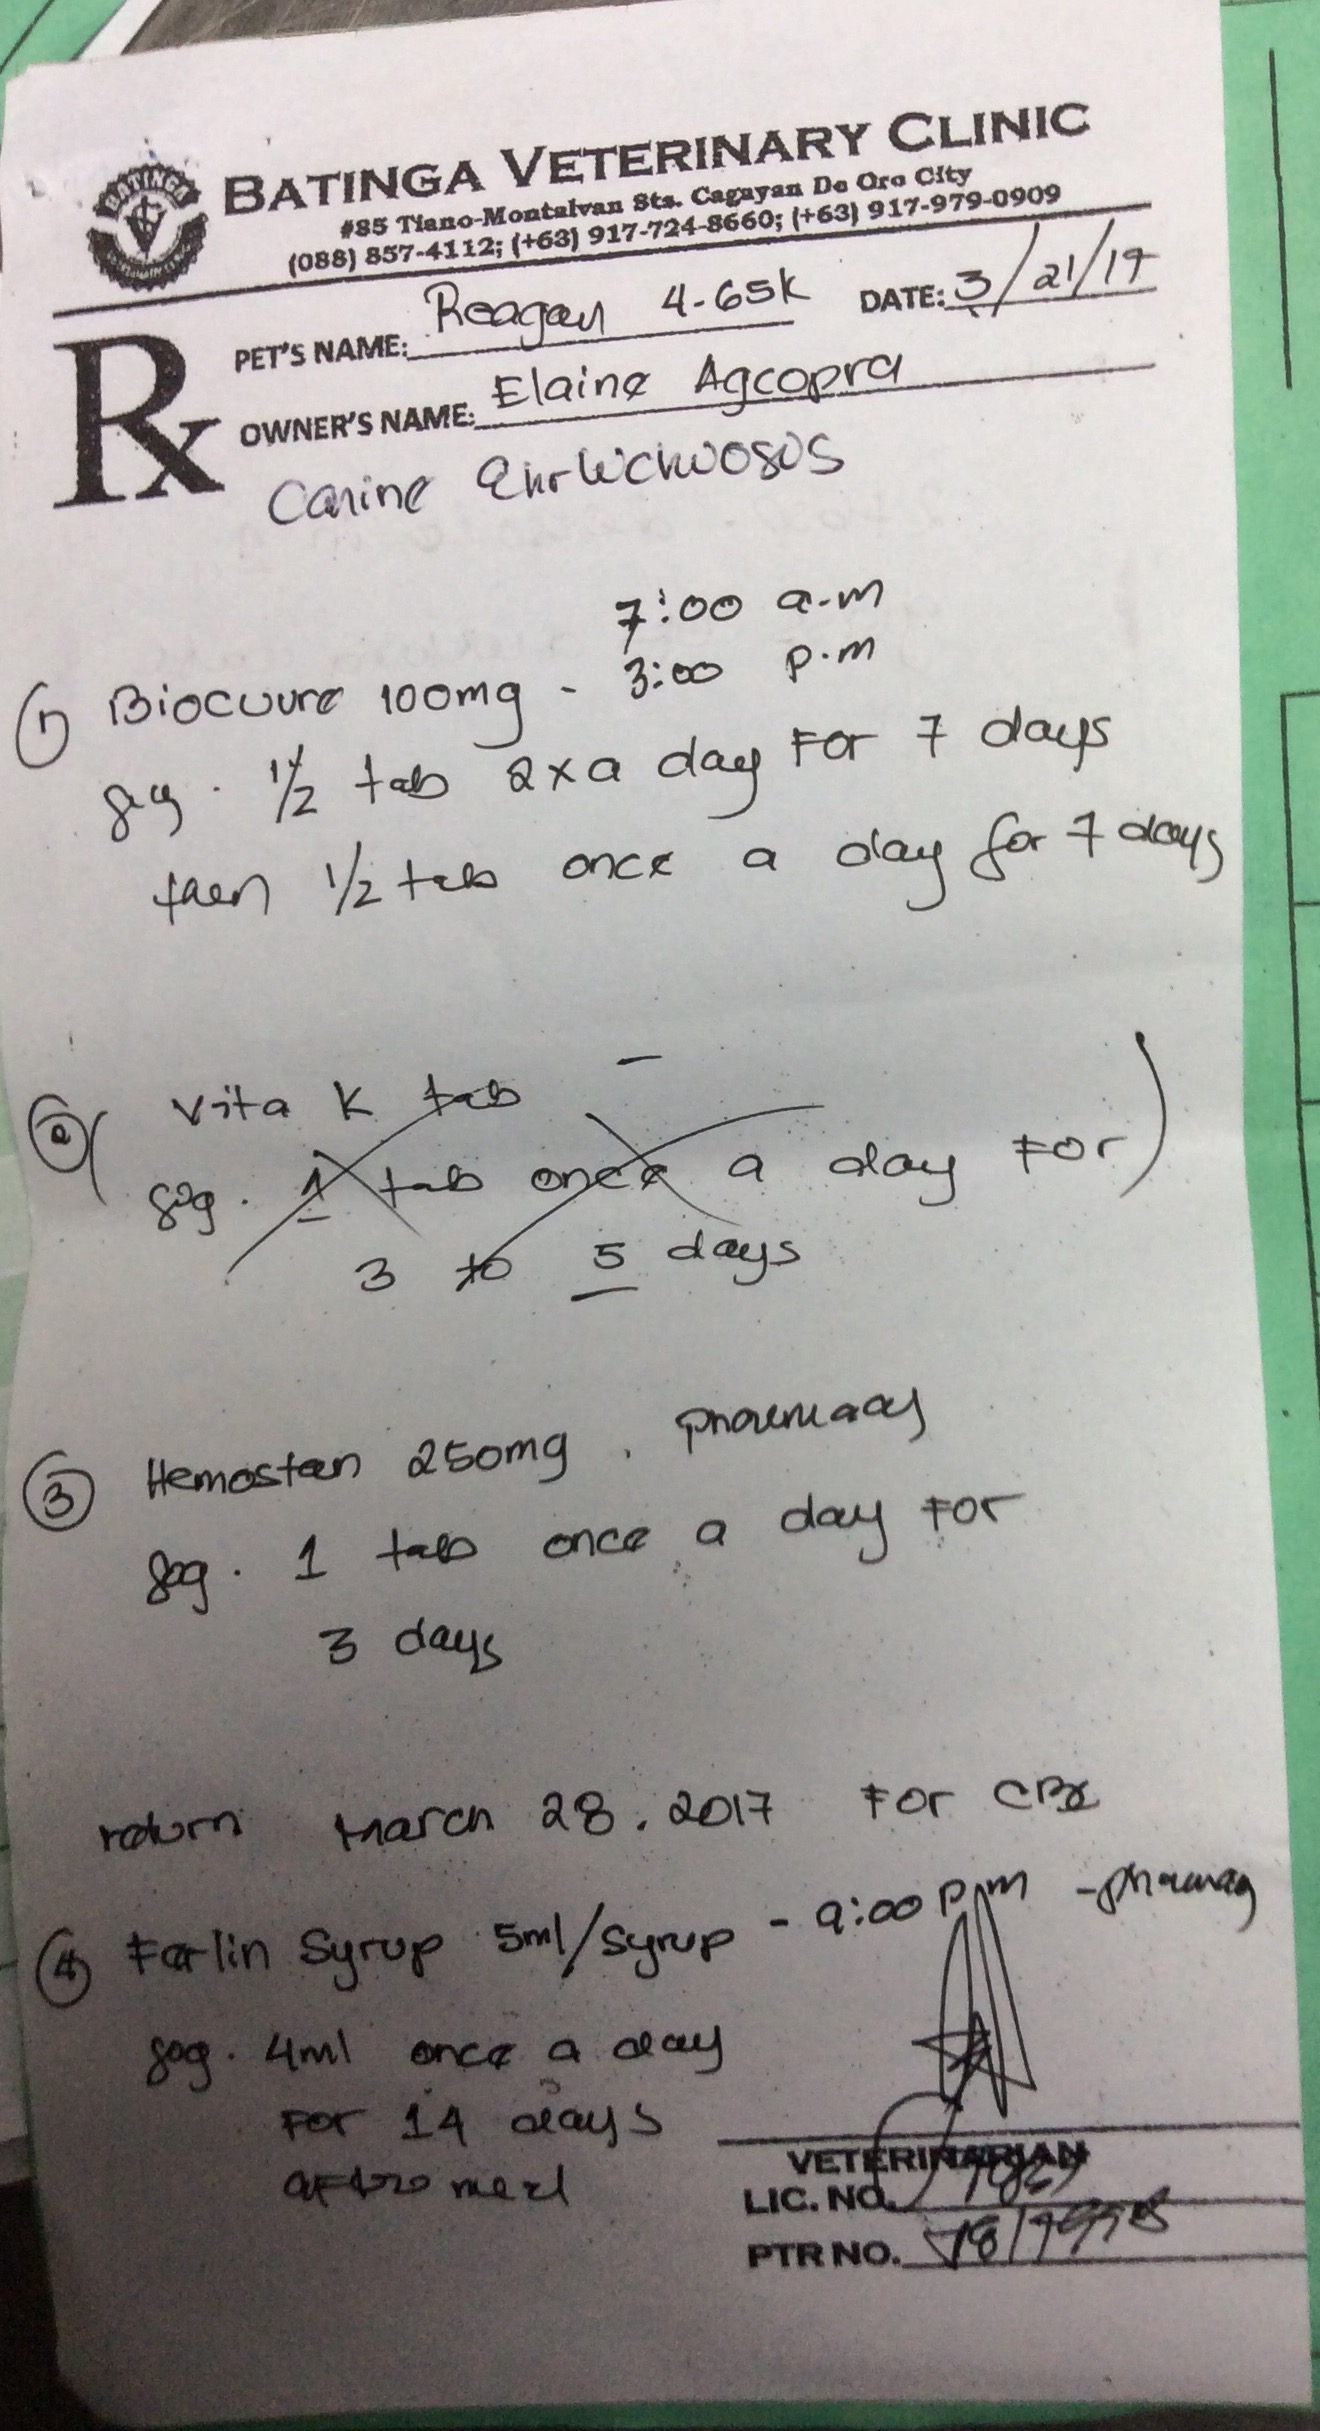 BATINGA
BATINGA VETERINARY CLINIC
#85 Tiano-Montalvan Sts. Cagayan De Oro City
(088) 857-4112; (+63) 917-724-8660; (+63) 917-979-0909
Rx
PET'S NAME: Reagan 4.65k DATE: 3/21/17
OWNER'S NAME: Elaine Agcopra
Canine
7:00 a.m
3:00 p.m
1) Biocuure 100mg -
sig. 1/2 tab 2xa day For 7 days
then 1/2 tab once a day for 7 days
2 ( Vita K tab -
sig. 1 tab once a day For )
3 to 5 days
3 Hemostan 250mg . pharmacy
sig. 1 tab once a day For
3 days
return March 28, 2017 For CBC
4 Ferlin Syrup 5ml/syrup - 9:00 p.m - pharmacy
sig. 4ml once a day
For 14 days
after meal
VETERINARIAN
LIC. NO.
PTR NO.